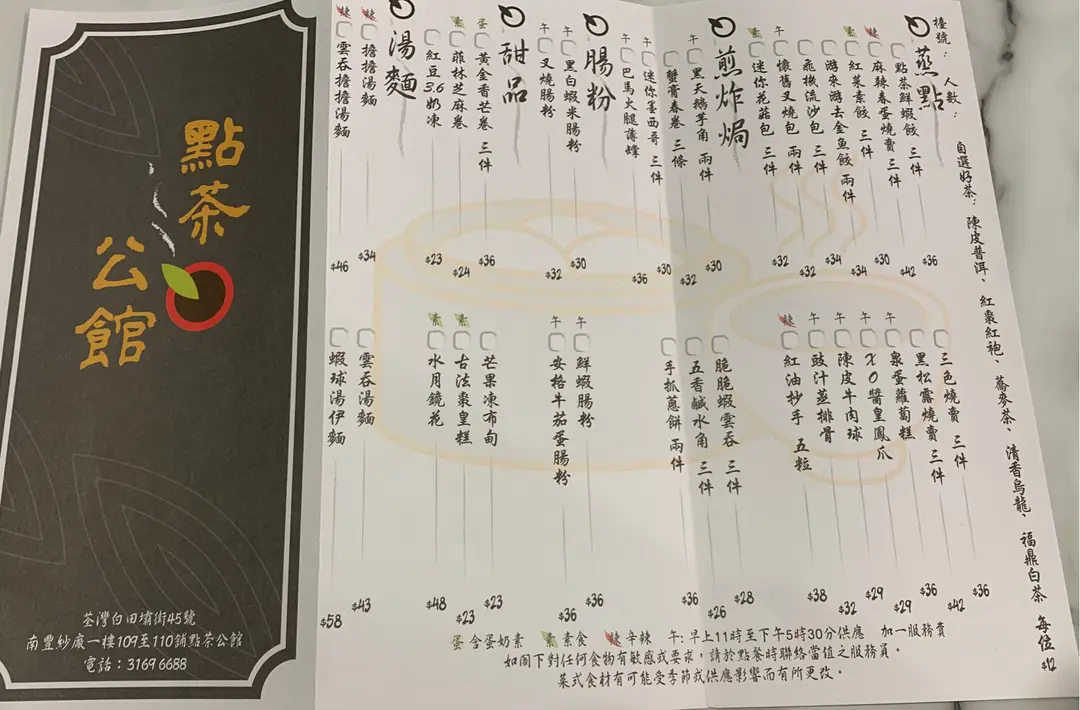 點茶
公館
荃灣白田壩街45號
南豐紗廠一樓109至110舖點茶公館
電話：3169 6688
檯號： 人數：
自選好茶：陳皮普洱、紅棗紅袍、蕎麥茶、清香烏龍、福鼎白茶 每位$12
蒸點
點茶鮮蝦餃 三件 $36
辣 麻辣春蛋燒賣 三件 $42
素 紅菜素餃 三件 $30
游來游去金魚餃 兩件 $34
飛機流沙包 三件 $34
午 懷舊叉燒包 兩件 $32
素 迷你花菇包 三件 $32
三色燒賣 三件 $36
黑松露燒賣 三件 $42
午 泉蛋蘿蔔糕 $36
午 XO醬皇鳳爪 $29
午 陳皮牛肉球 $29
午 豉汁蒸排骨 $32
辣 紅油抄手 五粒 $38
煎炸焗
午 黑天鵝芋角 兩件 $30
蟹膏春卷 三條 $32
午 迷你墨西哥 三件 $30
午 巴馬火腿薄罉 $36
脆脆蝦雲吞 三件 $28
五香鹹水角 三件 $26
手抓蔥餅 兩件 $36
腸粉
午 黑白蝦米腸粉 $30
午 叉燒腸粉 $32
午 鮮蝦腸粉 $36
午 安格牛茄蛋腸粉 $36
甜品
蛋 黃金香芒卷 三件 $36
素 菲林芝麻卷 $24
紅豆3.6奶凍 $23
芒果凍布甸 $23
素 古法棗皇糕 $23
素 水月鏡花 $48
湯麵
辣 擔擔湯麵 $34
辣 雲吞擔擔湯麵 $46
雲吞湯麵 $43
蝦球湯伊麵 $58
蛋 含蛋奶素 素 素食 辣 辛辣 午：早上11時至下午5時30分供應 加一服務費
如閣下對任何食物有敏感或要求，請於點餐時聯絡當值之服務員。
菜式食材有可能受季節或供應影響而有所更改。